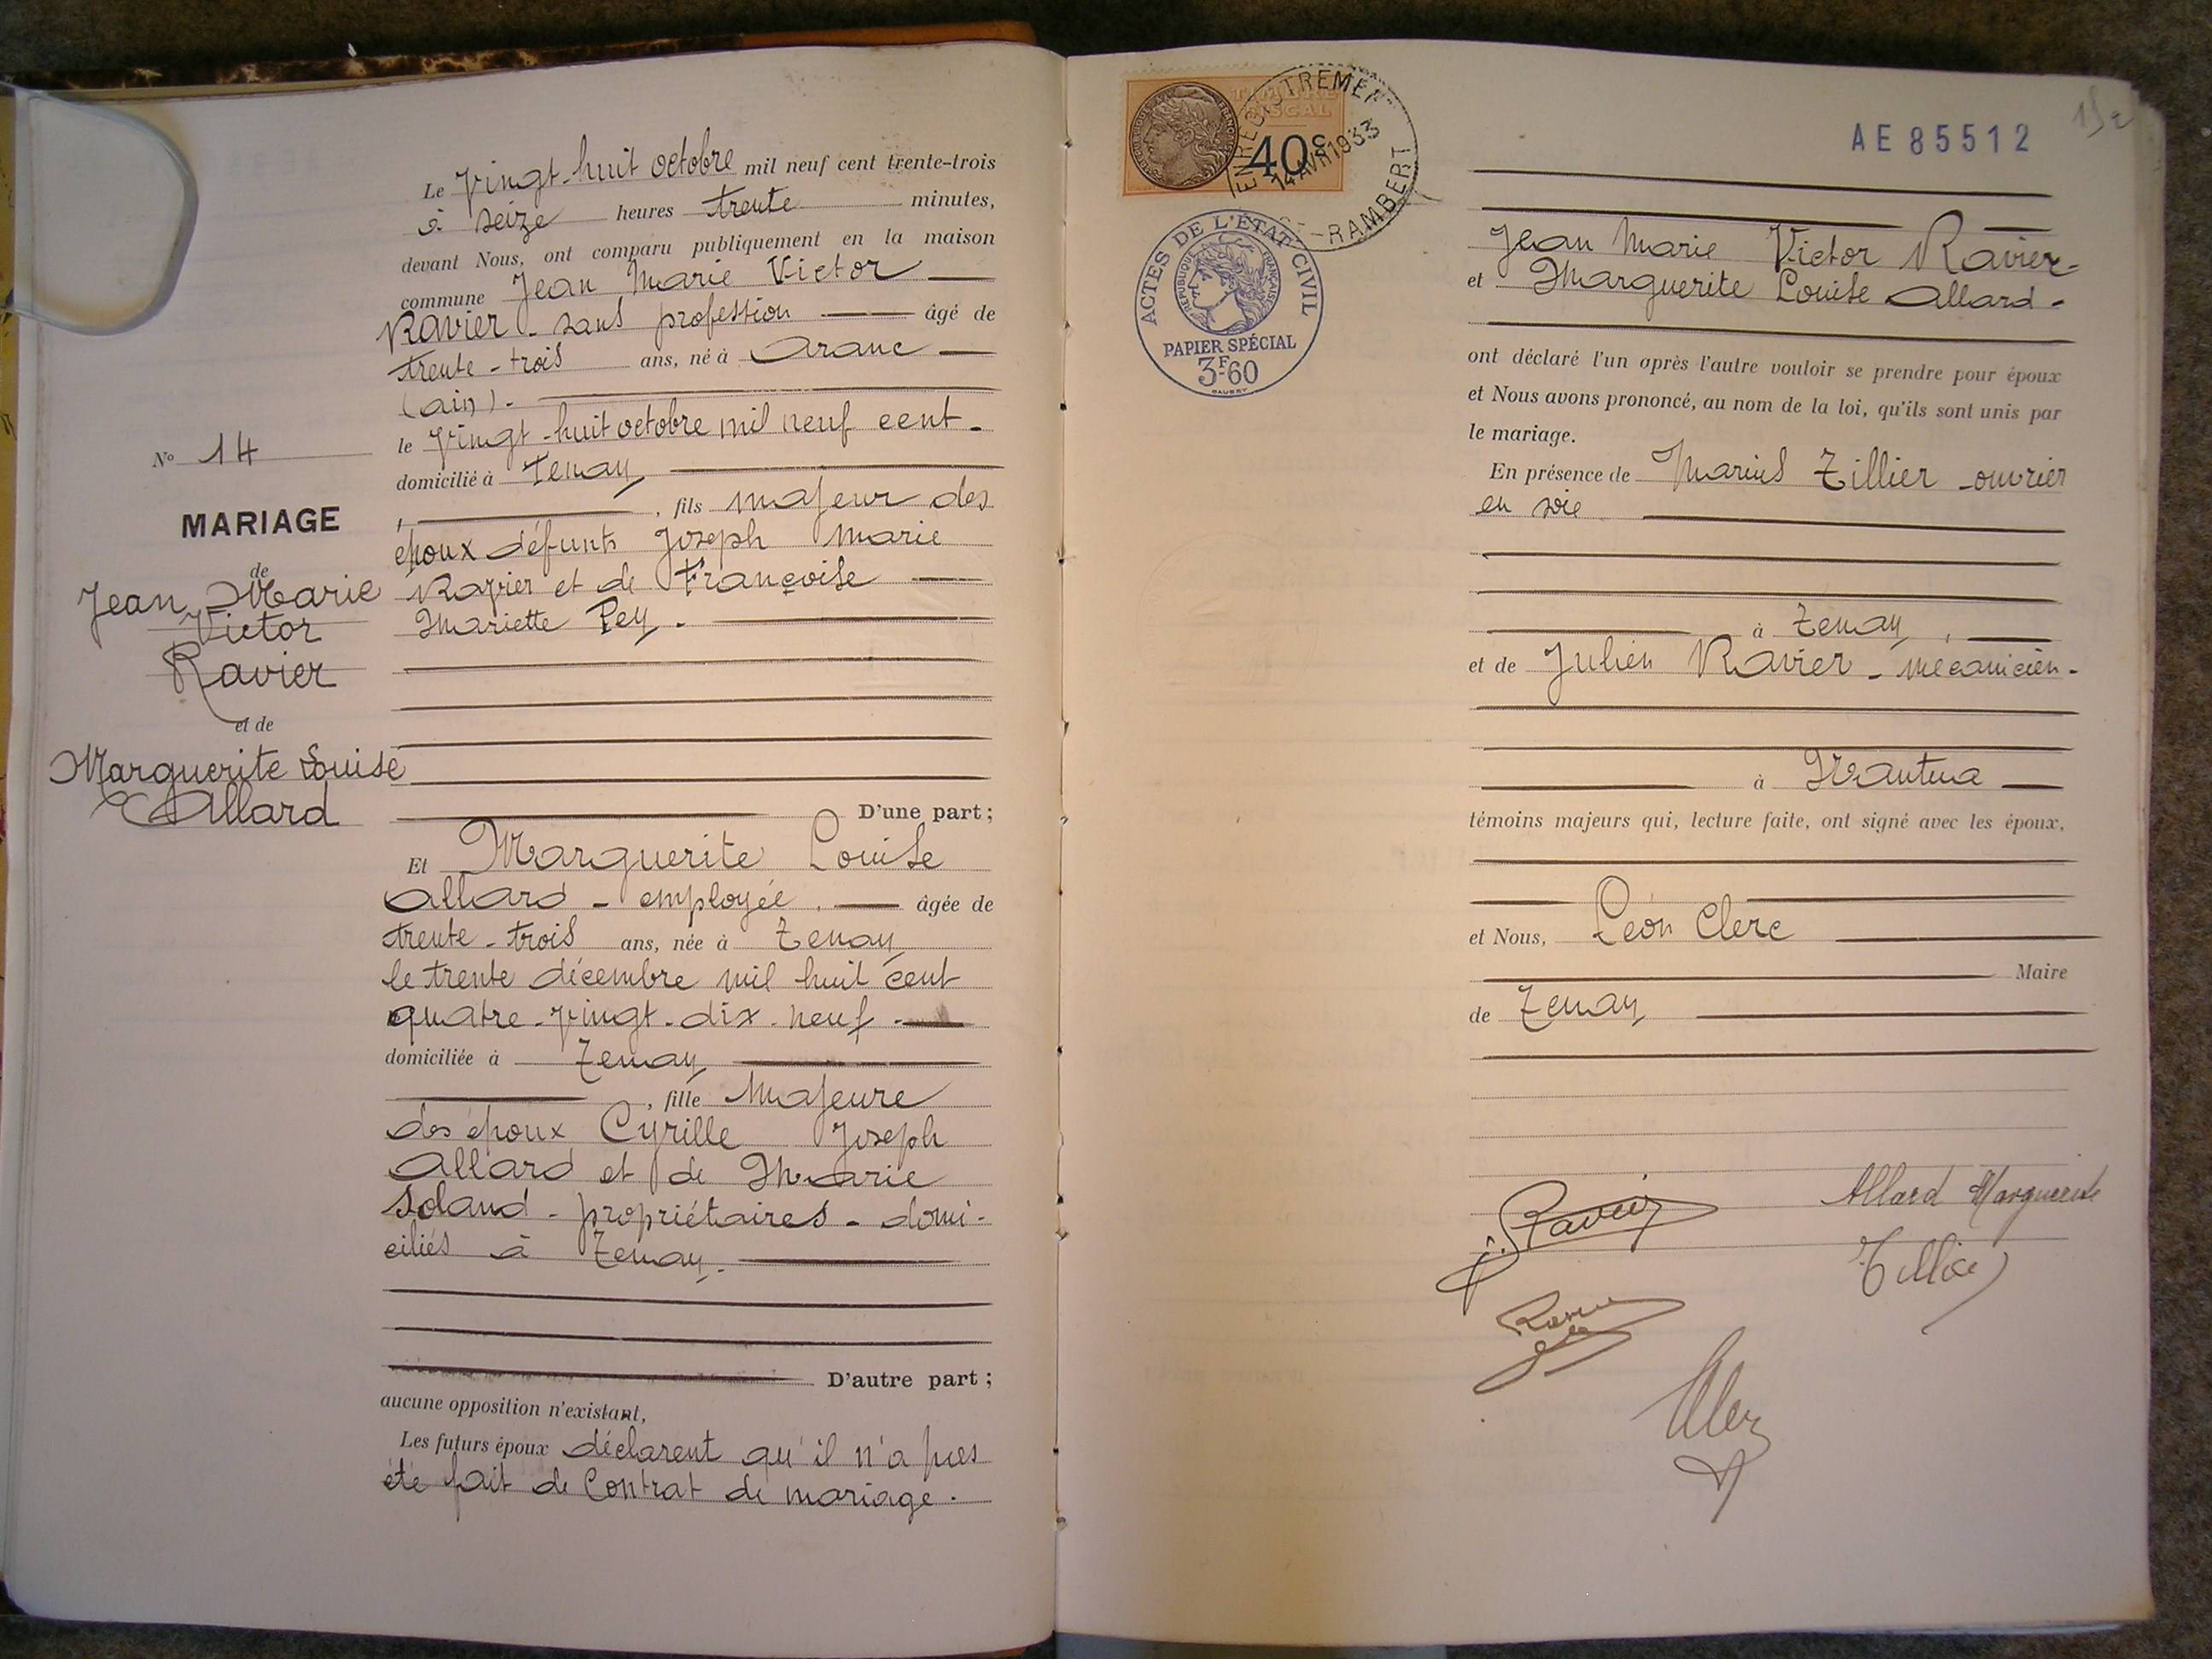 Le vingt-huit octobre mil neuf cent trente-trois
à seize heures trente minutes,
devant Nous, ont comparu publiquement en la maison
commune Jean Marie Victor
Ravier - sans profession âgé de
trente-trois ans, né à Aranc
(Ain).
le vingt-huit octobre mil neuf cent -
domicilié à Tenay
, fils majeur des
époux défunts Joseph Marie
Ravier et de Françoise
Mariette Pey.
D'une part;
Et Marguerite Louise
Allard - employée. âgée de
trente-trois ans, née à Tenay
le trente décembre mil huit cent
quatre-vingt-dix-neuf -
domiciliée à Tenay
, fille majeure
des époux Cyrille Joseph
Allard et de Marie
Soland - propriétaires - domi-
ciliés à Tenay.
D'autre part;
aucune opposition n'existant,
Les futurs époux déclarent qu'il n'a pas
été fait de Contrat de mariage.
N° 14
MARIAGE
de
Jean Marie
Victor
Ravier
et de
Marguerite Louise
Allard
TIMBRE
FISCAL
40c
14 AVRI 1933
RAMBERT
ACTES DE L'ÉTAT CIVIL
RÉPUBLIQUE FRANÇAISE
PAPIER SPÉCIAL
3F60
AE 85512
Jean Marie Victor Ravier -
et Marguerite Louise Allard -
ont déclaré l'un après l'autre vouloir se prendre pour époux
et Nous avons prononcé, au nom de la loi, qu'ils sont unis par
le mariage.
En présence de Marius Tillier - ouvrier
en soie
à Tenay,
et de Julien Ravier - mécanicien -
à Nantua
témoins majeurs qui, lecture faite, ont signé avec les époux,
et Nous, Léon Clerc
Maire
de Tenay
J. Ravier
Allard Marguerite
Tillier